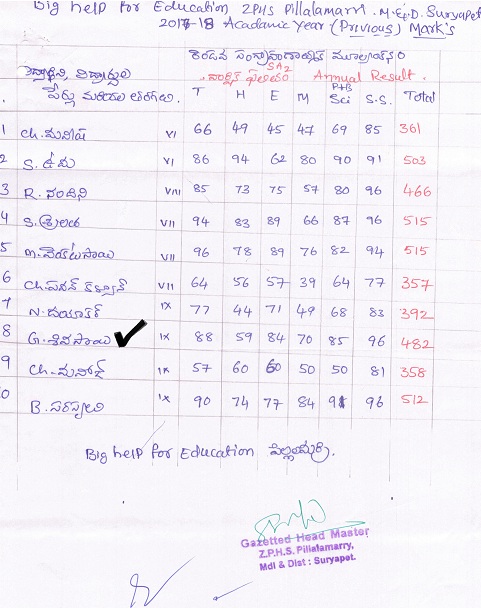 Big help for Education ZPHS Pillalamarri. M&D. Suryapet
2017-18 Acadamic Year (Previous) Mark's
SA2
Annual Result.
పేర్లు మరియు తరగతి. T H E M P+B Sci S.S. Total
1 Ch. మనీష VI 66 49 45 47 69 85 361
2 S. ఉమ VI 86 94 62 80 90 91 503
3 R. నందిని VIII 85 73 75 57 80 96 466
4 S. శ్రీలత VII 94 83 89 66 87 96 515
5 VII 96 78 89 76 82 94 515
6 Ch. పవన్ కళ్యాణ్ VII 64 56 57 39 64 77 357
7 N. దయాకర్ IX 77 44 71 49 68 83 392
8 G. శివసాయి IX 88 59 84 70 85 96 482
9 Ch. మనోజ్ IX 57 60 60 50 50 81 358
10 B. IX 90 74 77 84 91 96 512
Big help for Education పిల్లలమర్రి.
Gazetted Head Master
Z.P.H.S. Pillalamarry,
Mdl & Dist : Suryapet.